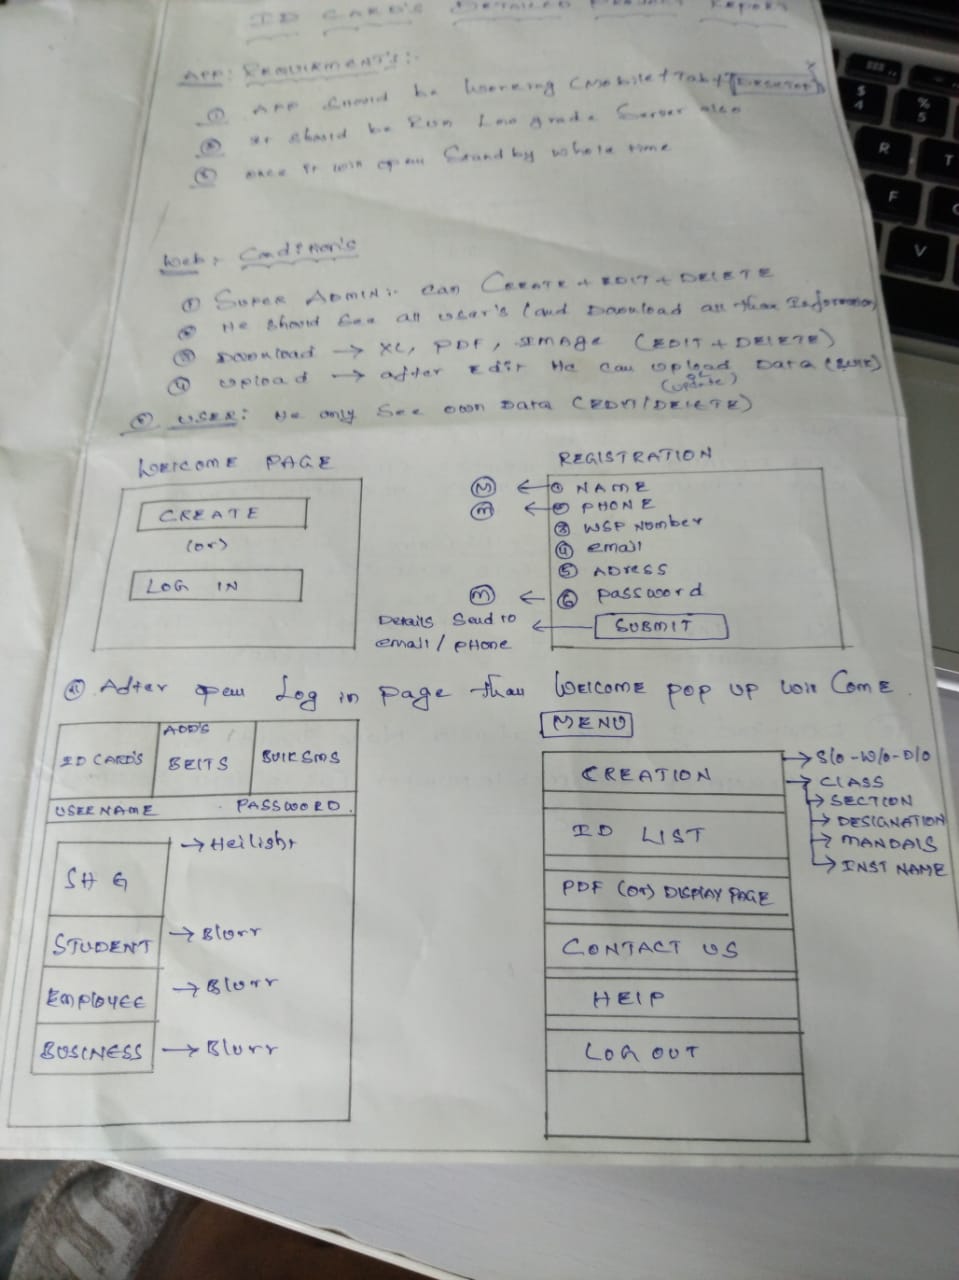 ID CARD'S DETAILED PROJECT REPORT
APP: REQUIRMENT'S:-
① APP Should be Working (Mobile + Tab + DESKTOP) x
② It should be Run Low grade Server also
③ once it will open Stand by whole time
Web: Condition's
① SUPER ADMIN:- can CREATE + EDIT + DELETE
② He should See all user's (and Download all than Information)
③ Download → XL, PDF, IMAGE (EDIT + DELETE)
④ Upload → after Edit He can upload DATA
or
(update)
⑤ USER: He only See own Data (EDIT/DELETE)
WELCOME PAGE
CREATE
(or)
LOG IN
REGISTRATION
Ⓜ ← ① NAME
Ⓜ ← ② PHONE
③ WSP Number
④ email
⑤ ADress
Ⓜ ← ⑥ password
Details Send to email / PHone ← SUBMIT
After open Log in page than WELCOME POP UP will COME.
ID CARD'S
ADD'S
BEITS
BULK SMS
USERNAME . PASSWORD.
SHG → Heilight
STUDENT → Blurr
EMPLOYEE → Blurr
BUSINESS → Blurr
MENU
CREATION
→ S/O-W/O-D/O
→ CLASS
→ SECTION
→ DESIGNATION
→ MANDALS
→ INST NAME
ID LIST
PDF (OR) DISPLAY PAGE
CONTACT US
HELP
LOG OUT
$
4
%
5
R
T
F
V